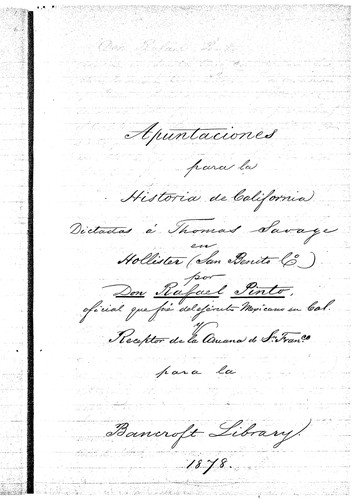 Apuntaciones
para la
Historia de California
Dictadas á Thomas Savage
en
Hollister (San Benito Co)
por
Don Rafael Pinto,
oficial que fué del ejército Mexicano en Cal.
y
Receptor de la Aduana de Sn Franco
para la
Bancroft Library.
1878.